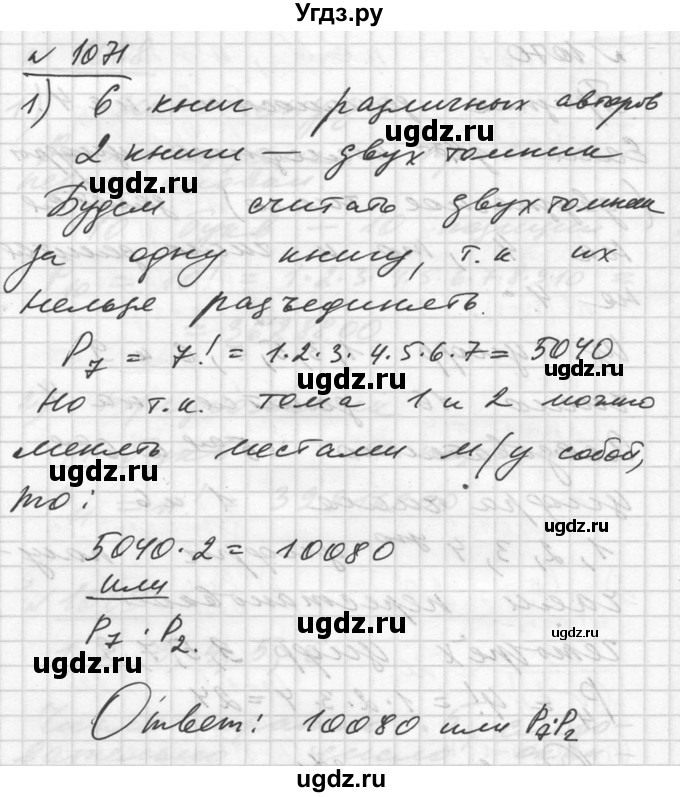 Угдз.ру
№ 1071
1.) 6 книг различных авторов
2 книги — двухтомник
Будем считать двухтомник
за одну книгу, т.к. их
нельзя разъединять.
P₇ = 7! = 1·2·3·4·5·6·7 = 5040
Но т.к. тома 1 и 2 можно
менять местами м/у собой,
то:
5040·2 = 10080
или
P₇·P₂.
Ответ: 10080 или P₇·P₂
ugdz.ru
ugdz.ru
ugdz.ru
ugdz.ru
ugdz.ru
ugdz.ru
ugdz.ru
ugdz.ru
ugdz.ru
ugdz.ru
ugdz.ru
ugdz.ru
ugdz.ru
ugdz.ru